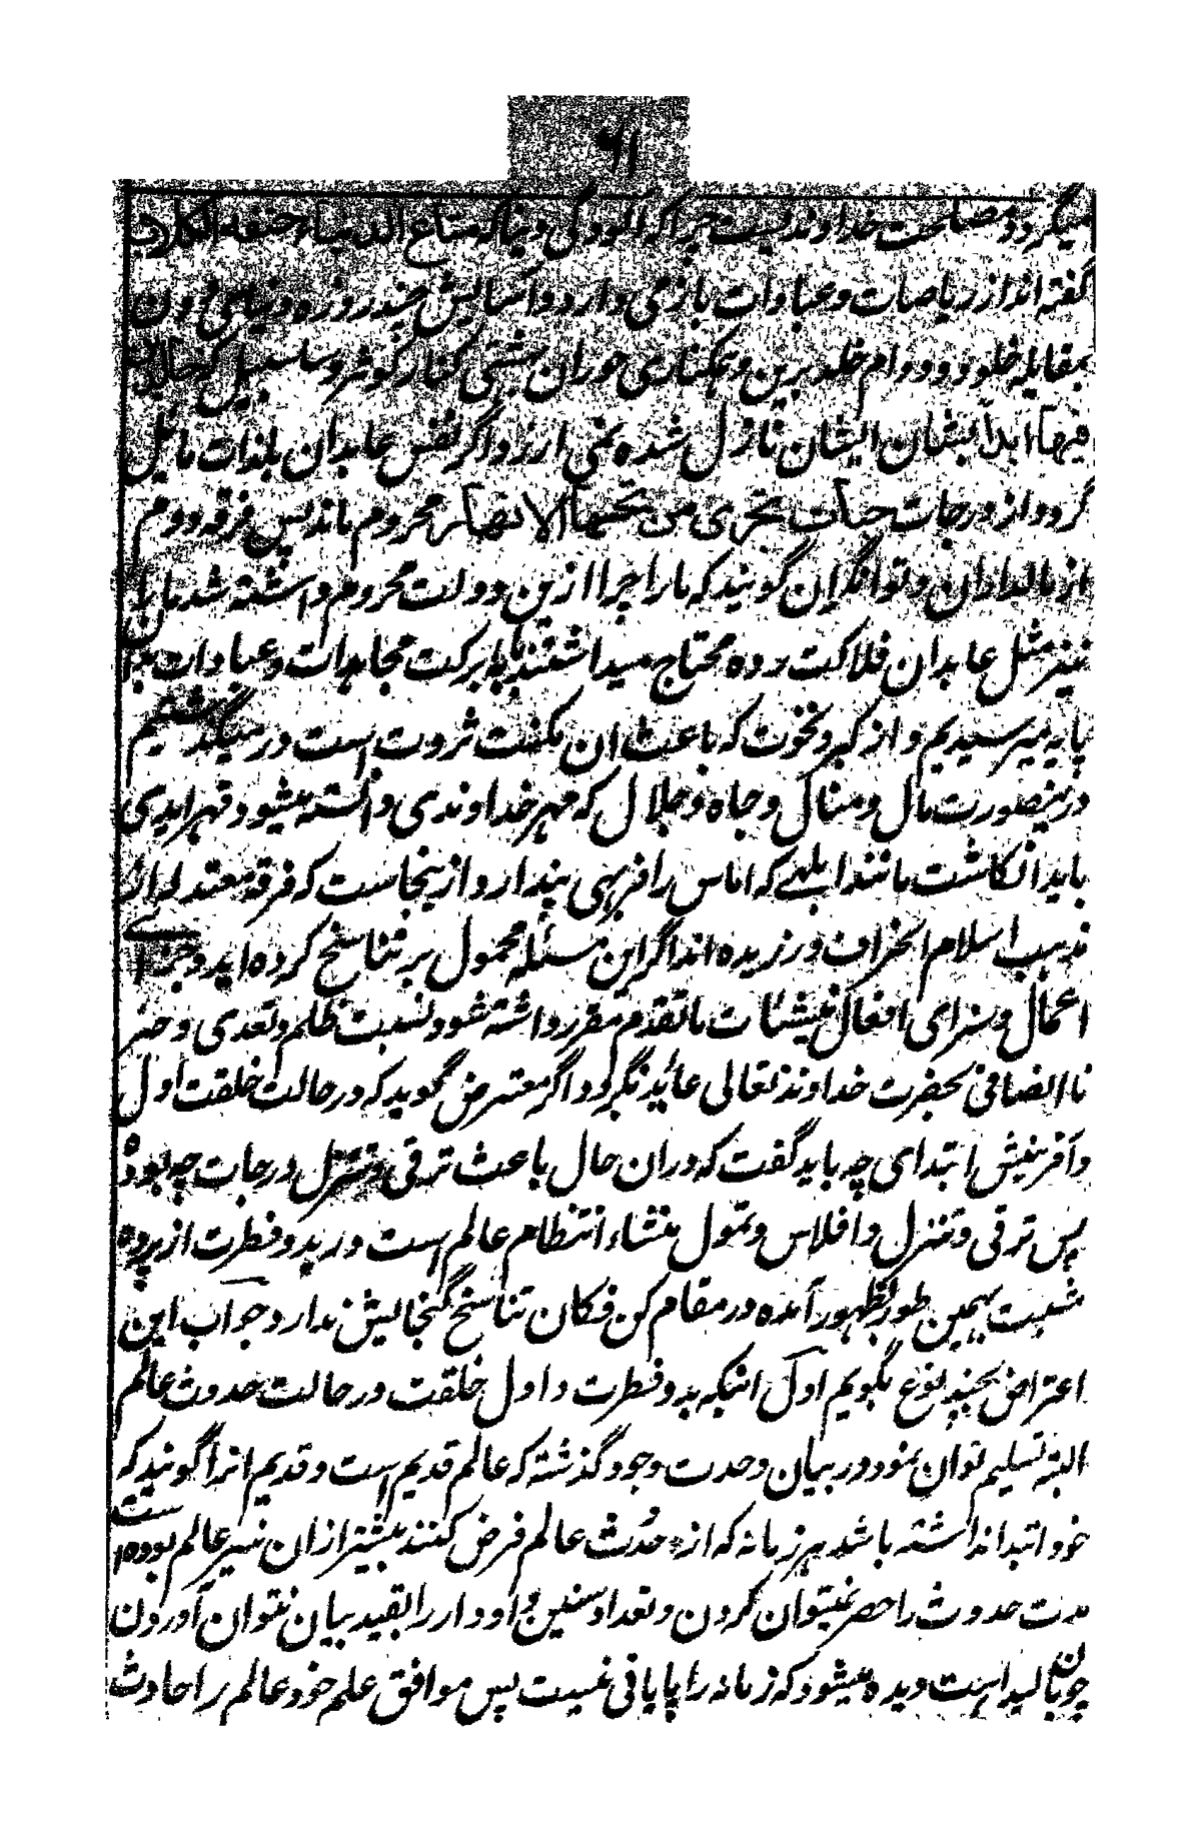 ۶۱
میگردد مصلحت خداوند نیست چرا که آلودگی دنیا که متاع الدنیا جیفه الکلاب
گفته اند از ریاضات و عبادات باز می دارد و آسایش چند روزه دنیای دون
بمقابله خلود و دوام خلد برین و همکناری حوران بهشتی کنار کوثر و سلسبیل که خالدین
فیها ابداً بشان ایشان نازل شده نمی ارزد و اگر نفس عابدان بلذات مایل
گردد از درجات جنات تجری من تحتها الانهار محروم ماند پس فرقه دوم
از مالداران و توانگران گویند که ما را چرا ازین دولت محروم داشته شد مایان
نیز مثل عابدان فلاکت زده محتاج میداشتند تا ببرکت مجاهدات و عبادات بدان
پایه میرسیدیم و از کبر و نخوت که باعث ان مکنت ثروت است در میگذشتیم
درینصورت مال و منال و جاه و جلال که مهر خداوندی دانسته میشود قهر ایزدی
باید انگاشت مانند ابلهے که اماس را فربهی پندارد و ازینجاست که فرقه معتزله از
مذهب اسلام انحراف ورزیده اند اگر این مسئله محمول بر تناسخ کرده اید و جزای
اعمال و سزای افعال نشئات ماتقدم مقرر داشته شود نسبت ظلم و تعدی و جبر
ناانصافی بحضرت خداوند تعالی عاید نگردد اگر معترض گوید که در حالت خلقت اول
و آفرینش ابتدای چه باید گفت که دران حال باعث ترقی و تنزل درجات چه بوده
پس ترقی و تنزل و افلاس و تمول منشاء انتظام عالم است و در بدو فطرت از پرده
شیت بهمین طور بظهور آمده در مقام کن فکان تناسخ گنجایش ندارد جواب این
اعتراض بچند نوع بگویم اول اینکه بدو فطرت و اول خلقت در حالت حدوث عالم
البته تسلیم توان نمود در بیان وحدت وجود گذشته که عالم قدیم است و قدیم انرا گویند که
خود ابتدا نداشته باشد هر زمانه که از حدث عالم فرض کنند بیشتر ازان نیز عالم بوده است
مدت حدوث را حصر نمیتوان کردن و تعداد سنین و ادوار را بقید بیان نتوان آوردن
چونکه است دیده میشود که زمانه را پایانی نیست پس موافق علم خود عالم را حادث